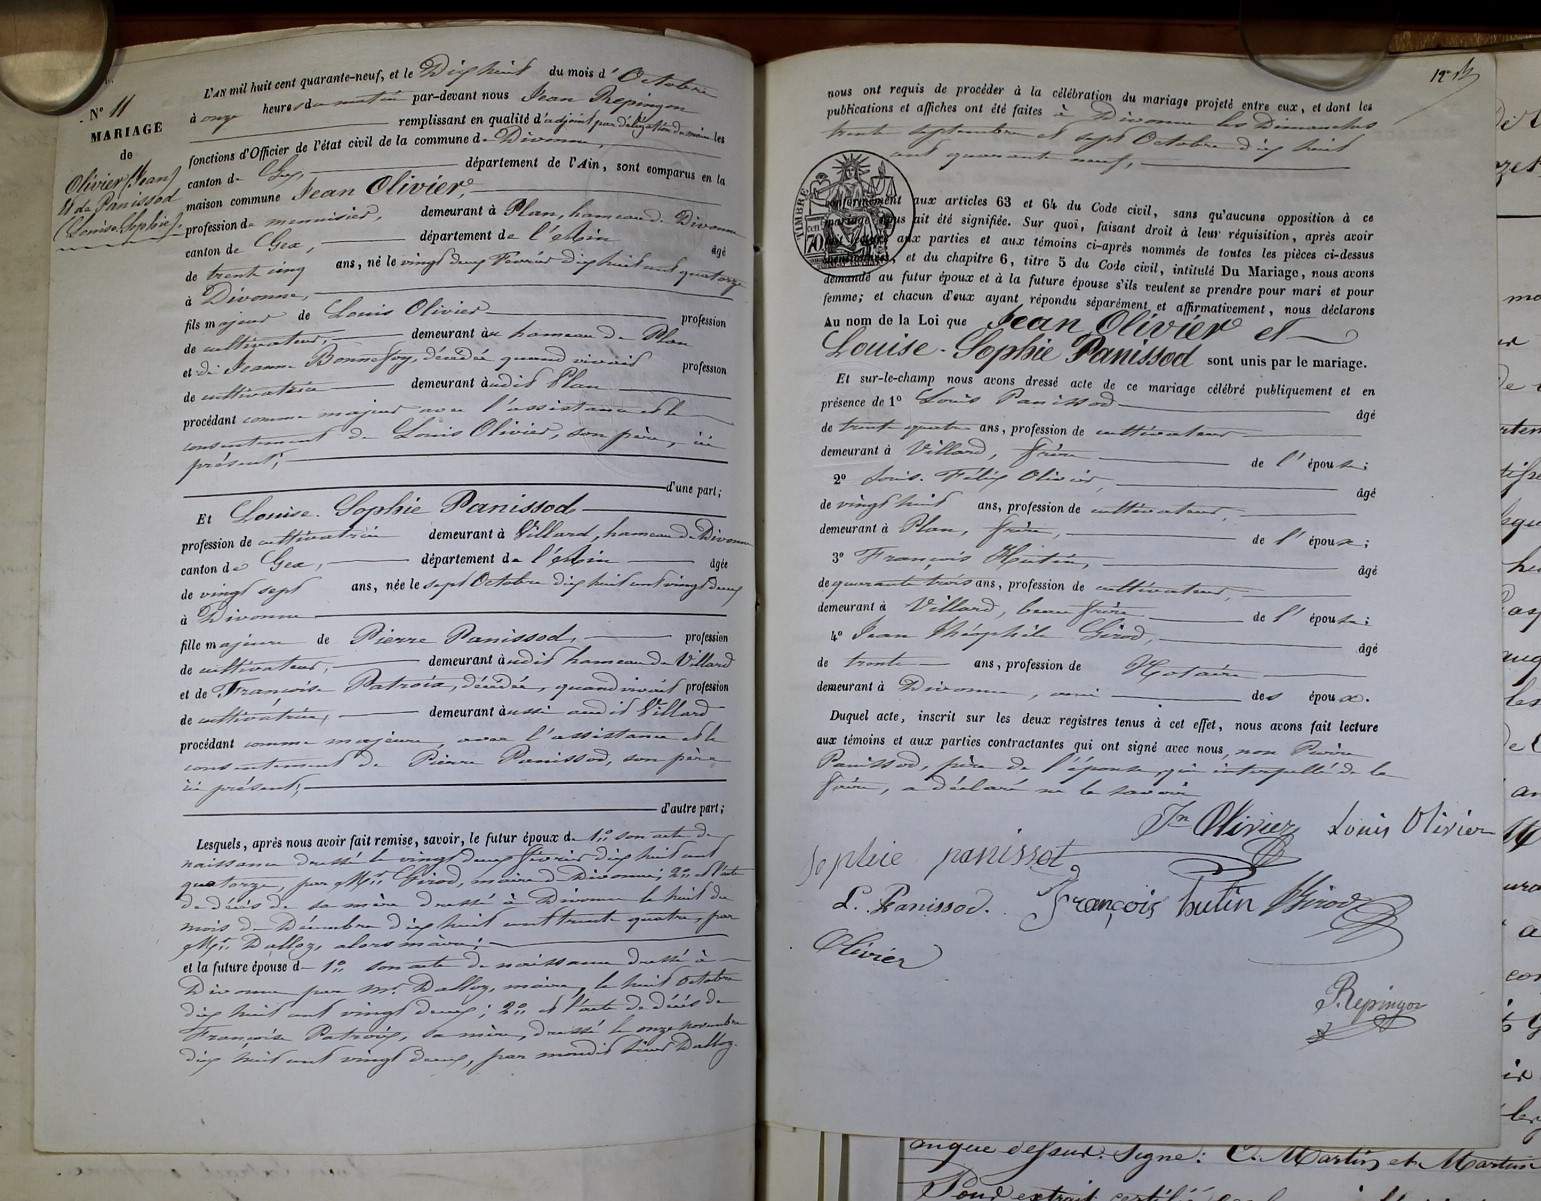 N° 11
MARIAGE
de
Olivier (Jean)
& de Panissod
(Louise Sophie).
L'AN mil huit cent quarante-neuf, et le Dix huit du mois d'Octobre
à onze heures du matin par-devant nous Jean Repingon
remplissant en qualité d'adjoint par délégation du maire les
fonctions d'Officier de l'état civil de la commune de Divonne,
canton de Gex, département de l'Ain, sont comparus en la
maison commune Jean Olivier,
profession de menuisier, demeurant à Plan, hameau de Divonne
canton de Gex, département de l'Ain âgé
de trente cinq ans, né le vingt deux Février dix huit cent quatorze
à Divonne,
fils majeur de Louis Olivier profession
de cultivateur, demeurant au hameau de Plan
et de Jeanne Bonnefoy, décédée quand vivait profession
de cultivatrice demeurant audit Plan
procédant comme majeur avec l'assistance et le
consentement de Louis Olivier, son père, ici
présent;
d'une part;
Et Louise-Sophie Panissod
profession de cultivatrice demeurant à Villard, hameau de Divonne
canton de Gex, département de l'Ain âgée
de vingt sept ans, née le sept Octobre dix huit cent vingt deux
à Divonne
fille majeure de Pierre Panissod, profession
de cultivateur, demeurant audit hameau de Villard
et de Françoise Patroix, décédée, quand vivait profession
de cultivatrice, demeurant aussi audit Villard
procédant comme majeure, avec l'assistance et le
consentement de Pierre Panissod, son père
ici présent;
d'autre part;
Lesquels, après nous avoir fait remise, savoir, le futur époux de 1° son acte de
naissance dressé le vingt deux février dix huit cent
quatorze, par Mr. Girod, maire de Divonne; 2° et l'acte
de décès de sa mère dressé à Divonne le huit du
mois de Décembre dix huit cent trente quatre, par
Mr. Dalloz, alors maire;
et la future épouse de 1° son acte de naissance dressé à
Divonne par Mr. Dalloz, maire, le huit octobre
dix huit cent vingt deux; 2° et l'acte de décès de
Françoise Patroix, sa mère, dressé le onze novembre
dix huit cent vingt deux, par mondit sieur Dalloz.
nous ont requis de procéder à la célébration du mariage projeté entre eux, et dont les
publications et affiches ont été faites à Divonne les Dimanches
trente septembre et sept Octobre dix huit
cent quarante neuf,
TIMBRE
70
conformément aux articles 63 et 64 du Code civil, sans qu'aucune opposition à ce
mariage nous ait été signifiée. Sur quoi, faisant droit à leur réquisition, après avoir
aux parties et aux témoins ci-après nommés de toutes les pièces ci-dessus
mentionnées, et du chapitre 6, titre 5 du Code civil, intitulé Du Mariage, nous avons
demandé au futur époux et à la future épouse s'ils veulent se prendre pour mari et pour
femme; et chacun d'eux ayant répondu séparément et affirmativement, nous déclarons
Au nom de la Loi que Jean Olivier et
Louise-Sophie Panissod sont unis par le mariage.
Et sur-le-champ nous avons dressé acte de ce mariage célébré publiquement et en
présence de 1° Louis Panissod âgé
de trente quatre ans, profession de cultivateur
demeurant à Villard, frère de l'épouse;
2° Louis-Félix Olivier, âgé
de vingt huit ans, profession de cultivateur,
demeurant à Plan, frère, de l'époux;
3° François Hutin, âgé
de quarante trois ans, profession de cultivateur,
demeurant à Villard, beau frère de l'épouse;
4° Jean Théophile Girod, âgé
de trente ans, profession de Notaire
demeurant à Divonne, ami des époux.
Duquel acte, inscrit sur les deux registres tenus à cet effet, nous avons fait lecture
aux témoins et aux parties contractantes qui ont signé avec nous, non Pierre
Panissod, père de l'épouse, qui interpellé de le
faire, a déclaré ne le savoir
Jn Olivier Louis Olivier
Sophie panissot
L. Panissod. François hutin Girod
Olivier
Repingon
anque dessus. Signé: C. Martin et Martin